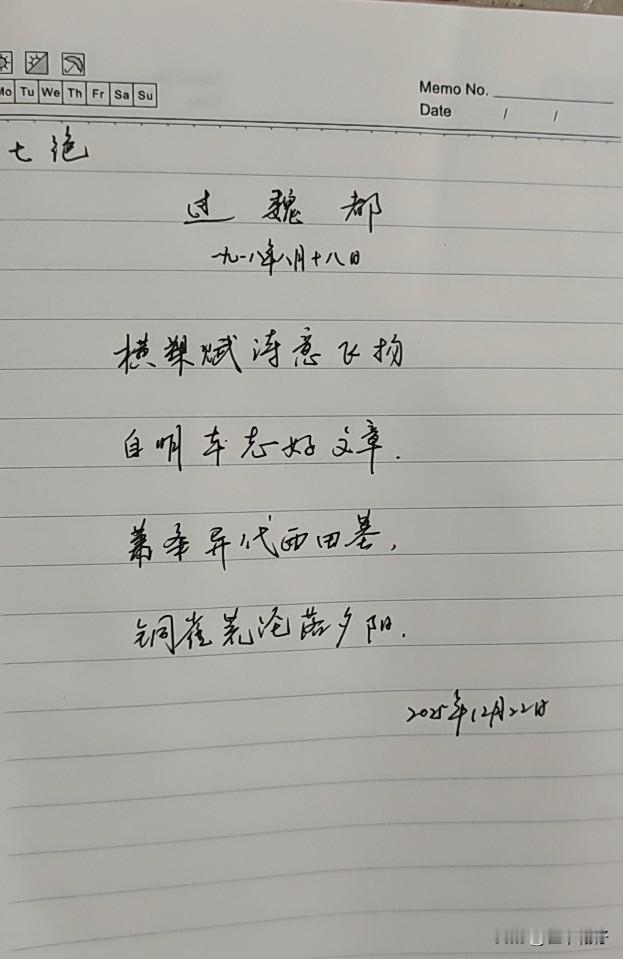 Mo Tu We Th Fr Sa Su
Memo No.
Date / /
七绝
过魏都
一九一八年八月十八日
横槊赋诗意飞扬
自明本志好文章.
萧条异代西田墓,
铜雀荒沦落夕阳.
2025年12月22日